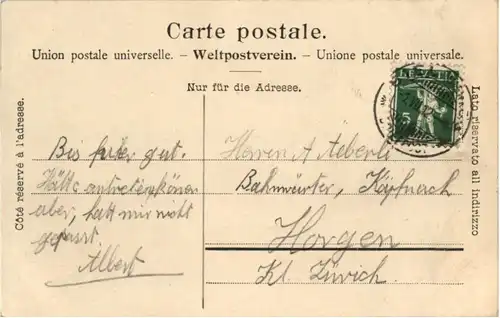 Carte postale.
Union postale universelle. – Weltpostverein. – Unione postale universale.
Nur für die Adresse.
Côté réservé à l'adresse.
Lato riservato all indirizzo
HELVETIA
5
Bis hier gut.
Hätte antreten können
aber, hatt mir nicht
gepasst.
Albert
Herren A Aeberli
Bahnwärter, Käpfnach
Horgen
Kt. Zürich.